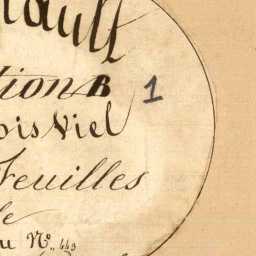 ault
tion B 1
ois Viel
Feuilles
le
u N° 443